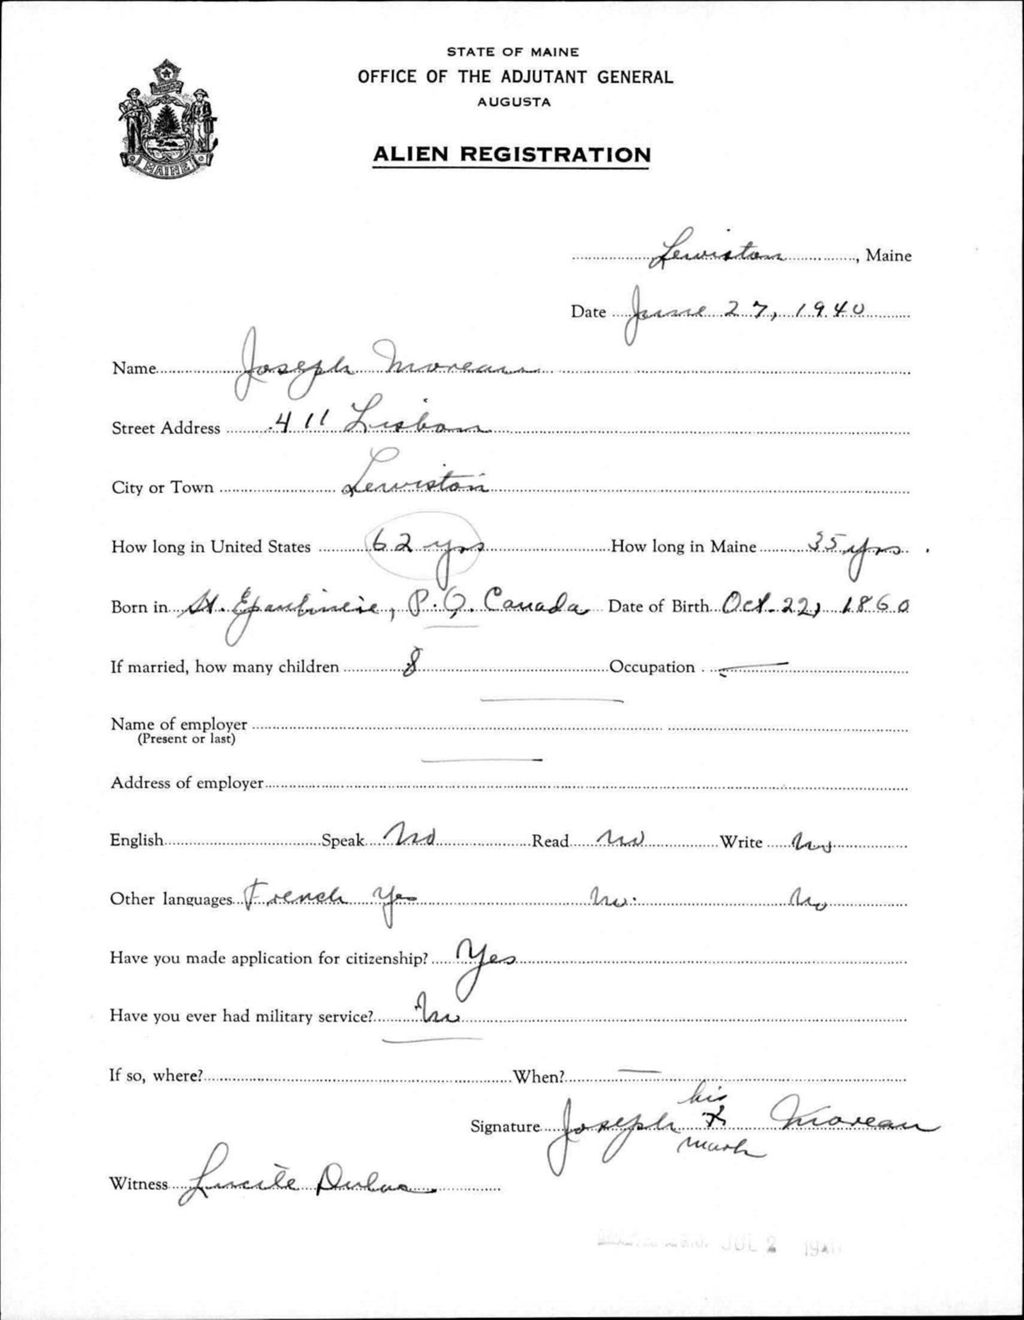 STATE OF MAINE
OFFICE OF THE ADJUTANT GENERAL
AUGUSTA
ALIEN REGISTRATION
MAINE
Lewiston, Maine
Date June 27, 1940
Name Joseph Moreau
Street Address 411 Lisbon
City or Town Lewiston
How long in United States 62 yrs How long in Maine 35 yrs.
Born in St. P.Q. Canada Date of Birth Oct. 22, 1860
If married, how many children 8 Occupation —
Name of employer
(Present or last)
Address of employer
English Speak No Read No Write No
Other languages French Yes No. No
Have you made application for citizenship? Yes
Have you ever had military service? No
If so, where? When? —
his
Signature Joseph X Moreau
mark
Witness Lucile
JUL 2 1940